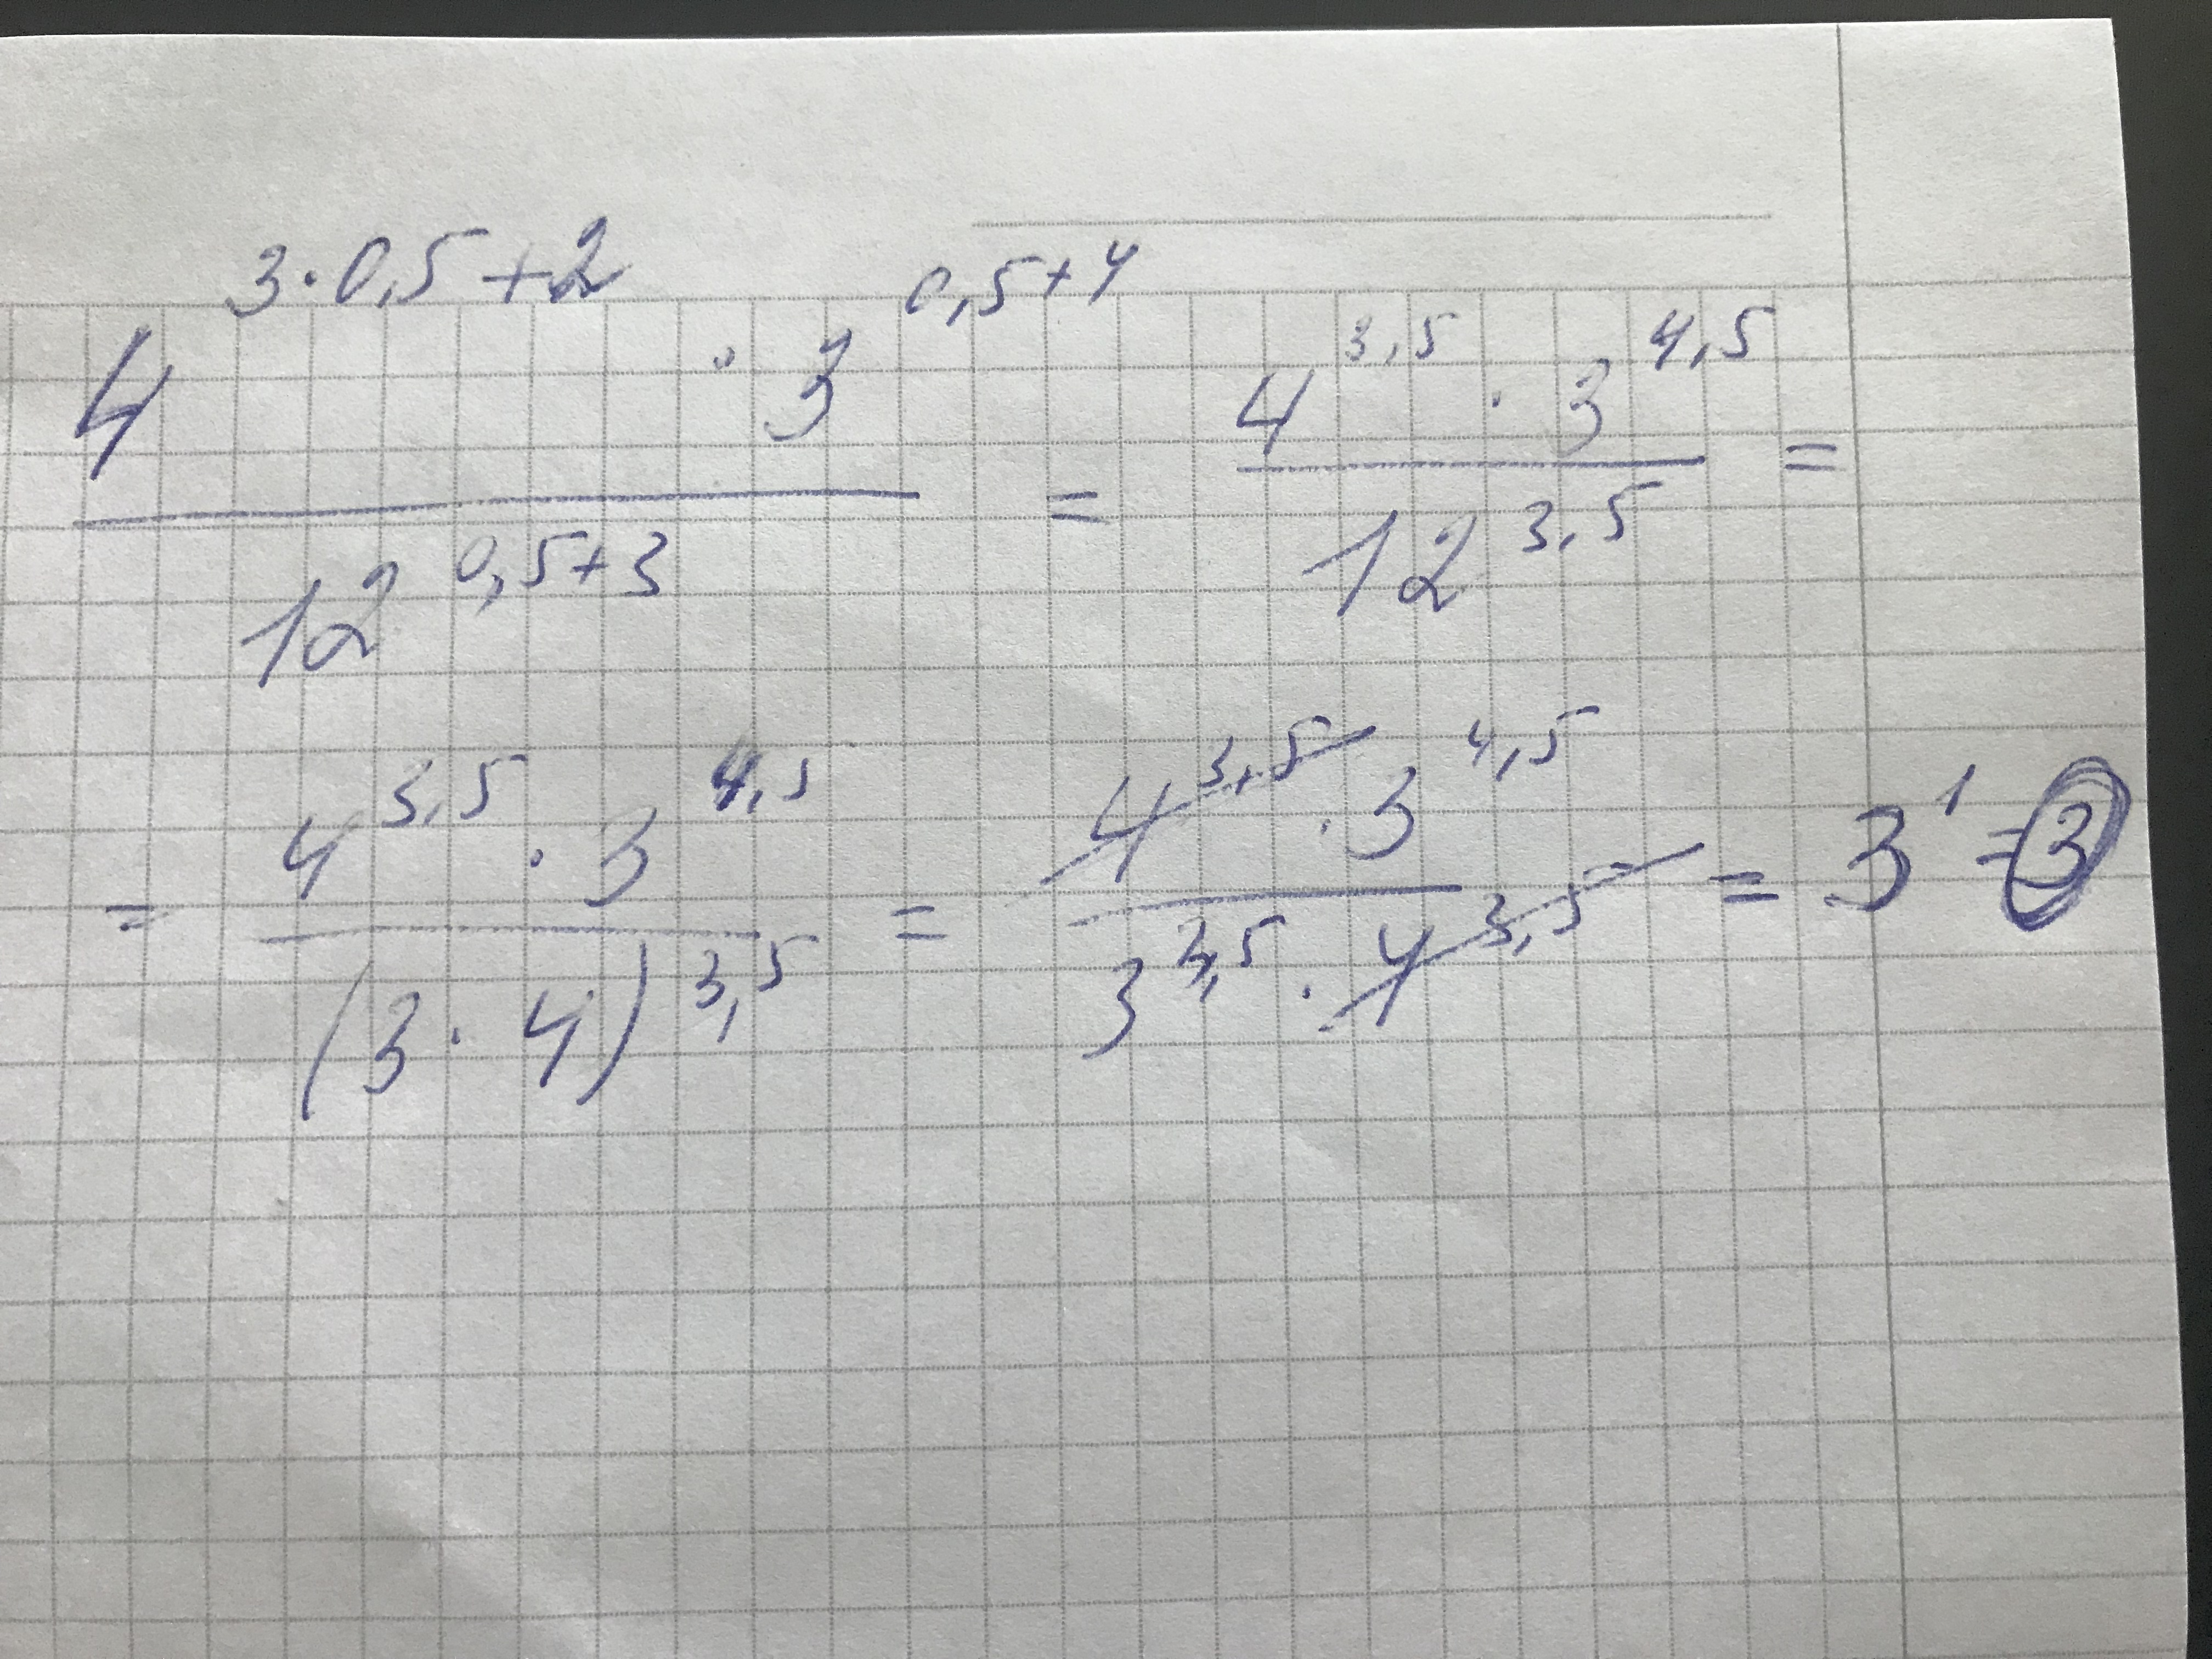 4^{3·0,5+2} · 3^{0,5+4} / 12^{0,5+3} = 4^{3,5} · 3^{4,5} / 12^{3,5} =
= 4^{3,5} · 3^{4,5} / (3·4)^{3,5} = 4^{3,5} · 3^{4,5} / 3^{3,5} · 4^{3,5} = 3^1 = 3